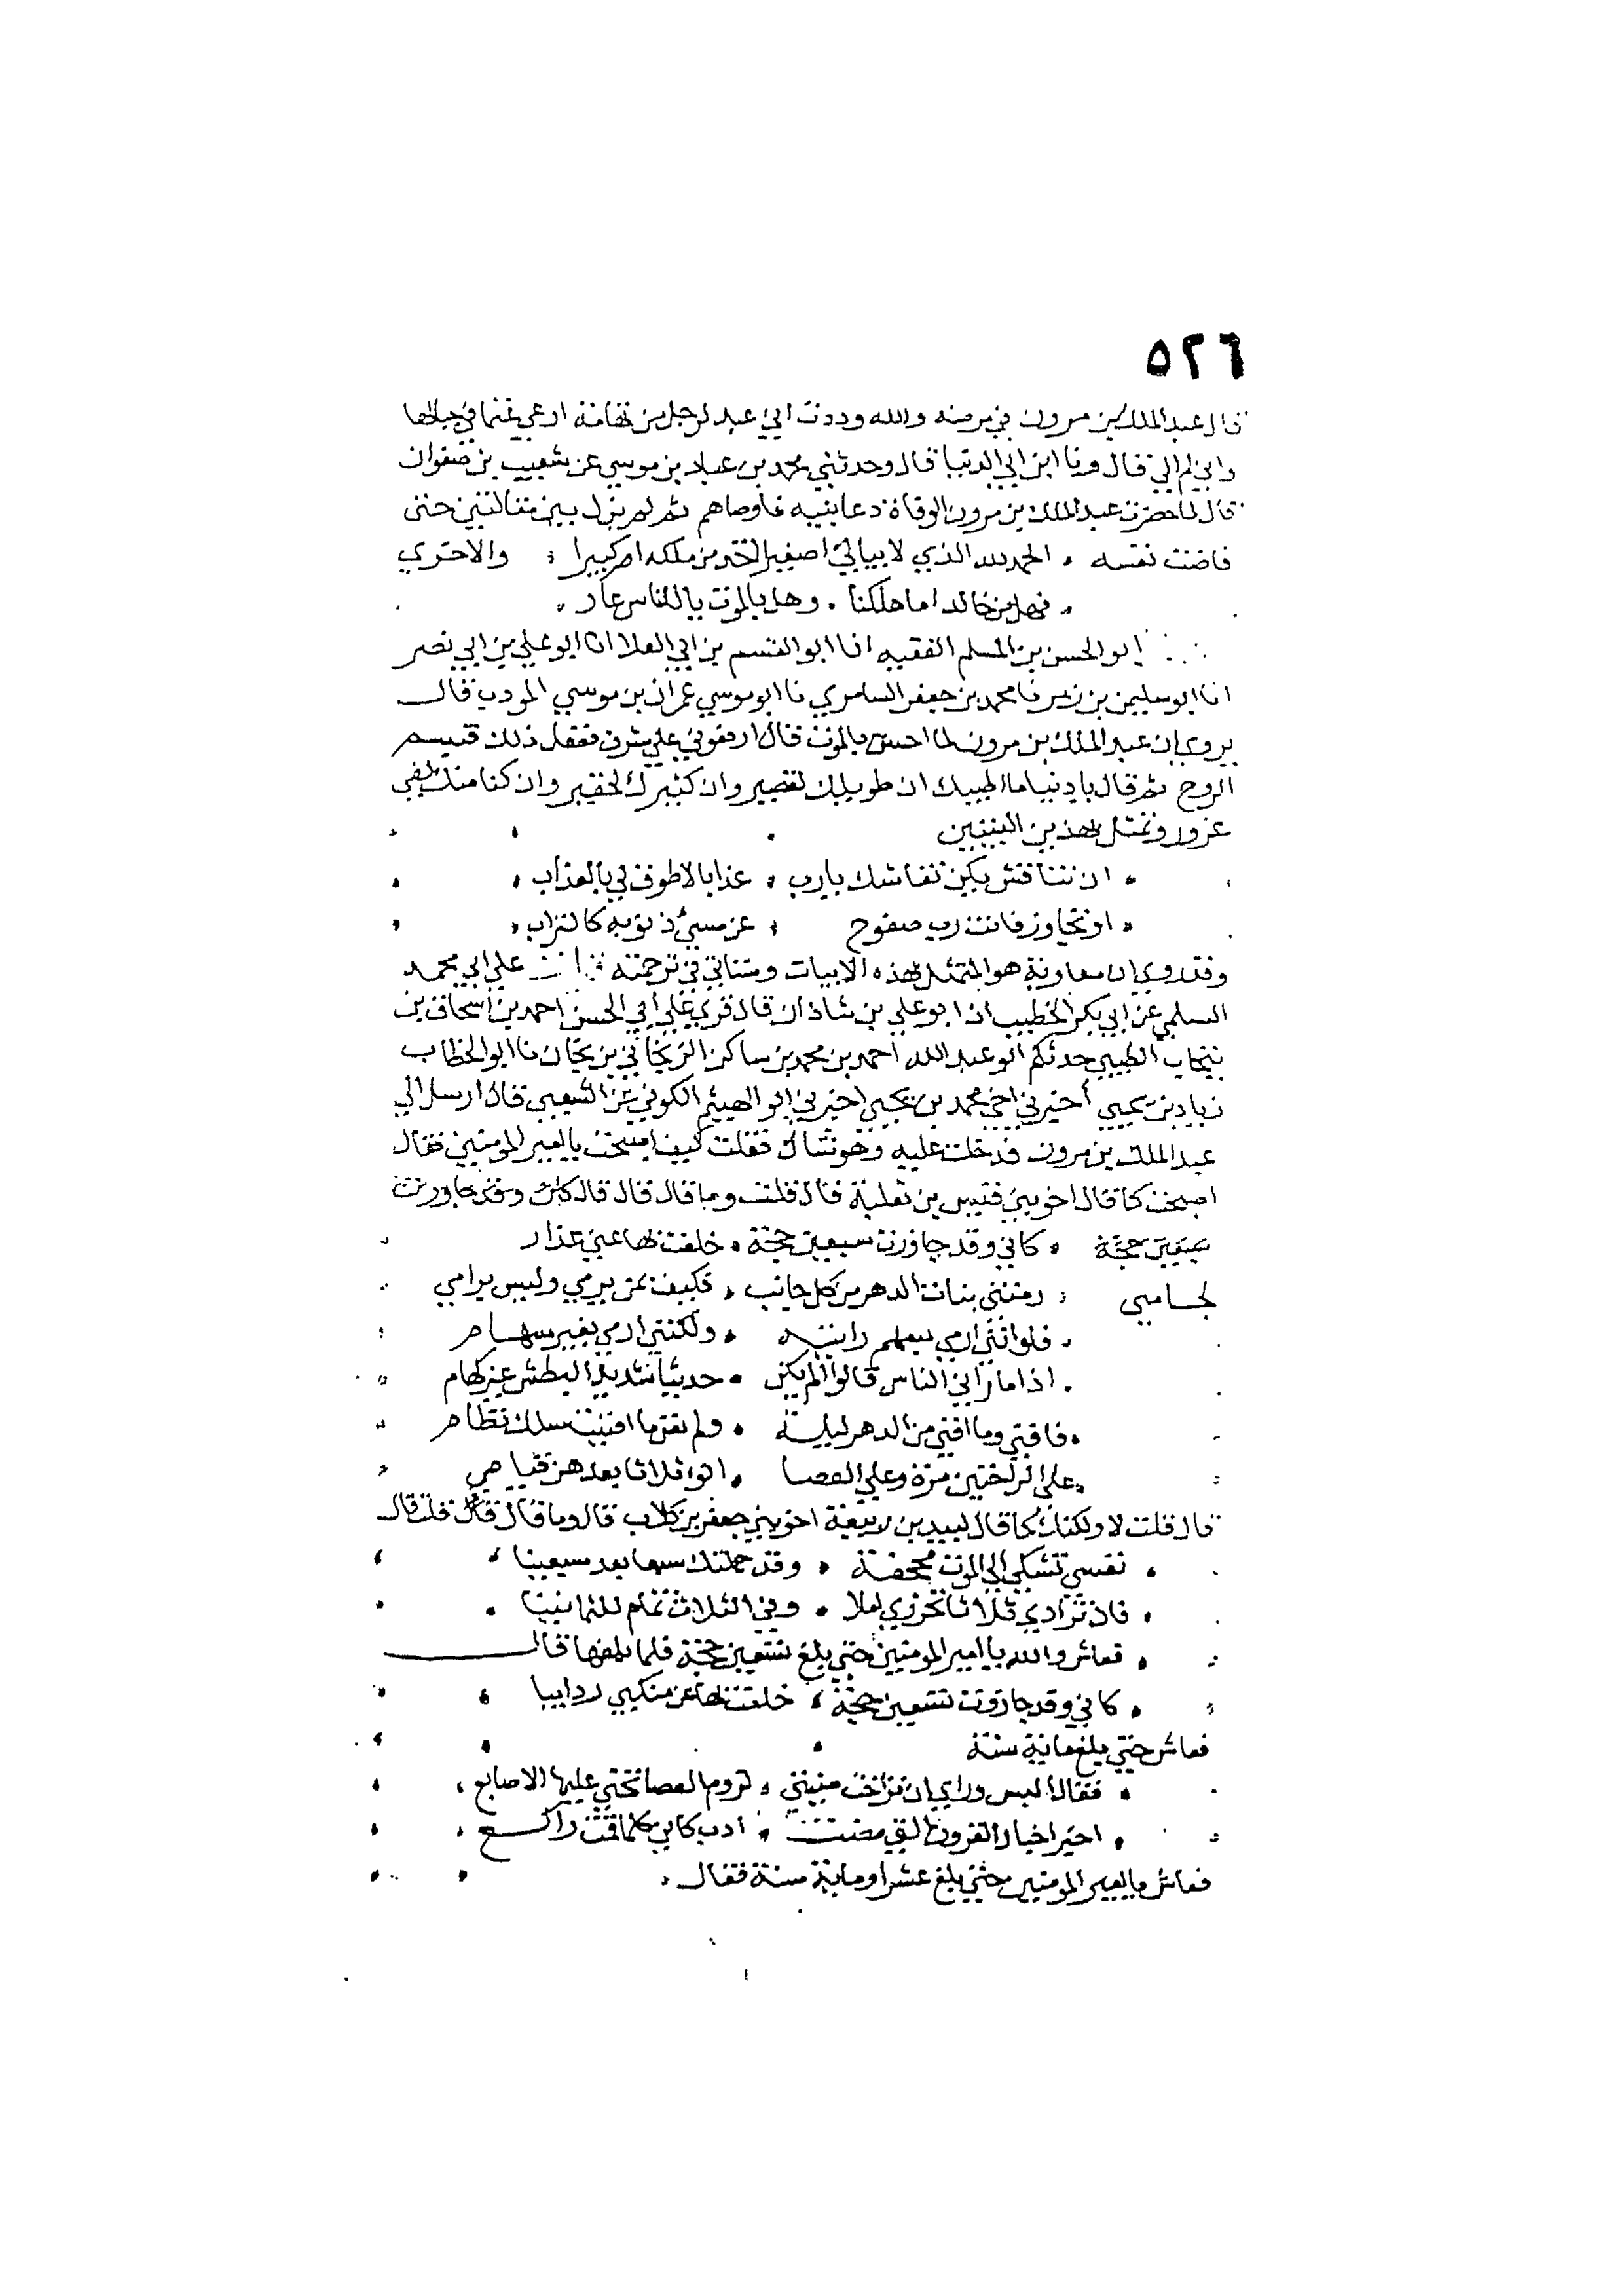 ٥٢٦
قال عبد الملك بن مرون في مرضه والله وددت اني عبد لرجل من تهامة ارعي غنما في جبالها
واني لم الي قال ونا ابن ابي الدنيا قال وحدثني محمد بن عباد بن موسي عن شعيب بن صفوان
قال لما حضرت عبد الملك بن مرون الوفاة دعا بنيه فاوصاهم ثم لم يزل بين مقالتين حتى
فاضت نفسه • الحمد لله الذي لا يبالي اصغيرا اخذ من ملكه ام كبيرا • والاخري
• فهل من خالد اما هلكنا • وهل بالموت يا للناس عار •
ابو الحسن بن المسلم الفقيه انا ابو القسم بن ابي العلا انا ابو علي بن ابي نصر
انا ابو سليمن بن زبر نا محمد بن جعفر السامري نا ابو موسي عمران بن موسي المودب قال
يروي ان عبد الملك بن مرون لما احس بالموت قال ارفعوني علي شرف ففعل ذلك فتنسم
الروح ثم قال يا دنيا ما اطيبك ان طويلك لقصير وان كثيرك لحقير وان كنا منك لفي
غرور وتمثل بهذين البيتين
• ان تناقش يكن نقاشك يا رب • عذابا لا طوق لي بالعذاب •
• او تجاوز فانت رب صفوح • عن مسيء ذنوبه كالتراب •
وقد روي ان معاوية هو المتمثل بهذه الابيات وستاتي في ترجمته علي ابي محمد
السلمي عن ابي بكر الخطيب انا ابو علي بن شاذان قال قري علي ابي الحسن احمد بن اسحاق بن
نيخاب الطيبي حدثكم ابو عبد الله احمد بن محمد بن ساكن الزنجاني بزنجان نا ابو الخطاب
زياد بن يحيي أخبرني اخي محمد بن يحيي اخبرني ابو الهيثم الكوفي عن الشعبي قال ارسل الي
عبد الملك بن مرون فدخلت عليه وهو شاك فقلت كيف اصبحت يا امير المومنين فقال
اصبحت كما قال اخو بني قيس بن ثعلبة قال قلت وما قال قال قال كاني وقد جاوزت
سبعين حجة • كاني وقد جاوزت سبعين حجة • خلعت بها عني عذار
لجامي • رمتني بنات الدهر من كل جانب • فكيف بمن يرمي وليس برامي
• فلو انني ارمي بسهم رايته • ولكنني ارمي بغير سهام
• اذا ما راني الناس قالوا الم يكن • حديثا شديد البطش غير كهام
• فافني وما افني من الدهر ليلة • ولم يغن ما افنيت سلك نظام
• علي الراحتين مرة وعلي العصا • انوء ثلاثا بعدهن قيامي
قال قلت لا ولكنك كما قال لبيد بن ربيعة اخو بني جعفر بن كلاب قال وما قال قال قلت قال
• نفسي تشكي الي الموت مجحفة • وقد حملتك سبعا بعد سبعينا •
• فان تزادي ثلاثا تحرزي املا • وفي الثلاث تمام للثمانينا •
• فعاش والله يا امير المومنين حتي بلغ تسعين حجة فلما بلغها قال
• كاني وقد جاوزت تسعين حجة • خلعت بها عن منكبي ردايبا
فعاش حتي بلغ مائة سنة
• فقال اليس وراي ان تراخت منيتي • لزوم العصا تحني عليها الاصابع •
• اخبر اخبار القرون التي مضت • ادب كاني كلما قمت راكع •
فعاش يا امير المومنين حتي بلغ عشرا وماية سنة فقال •